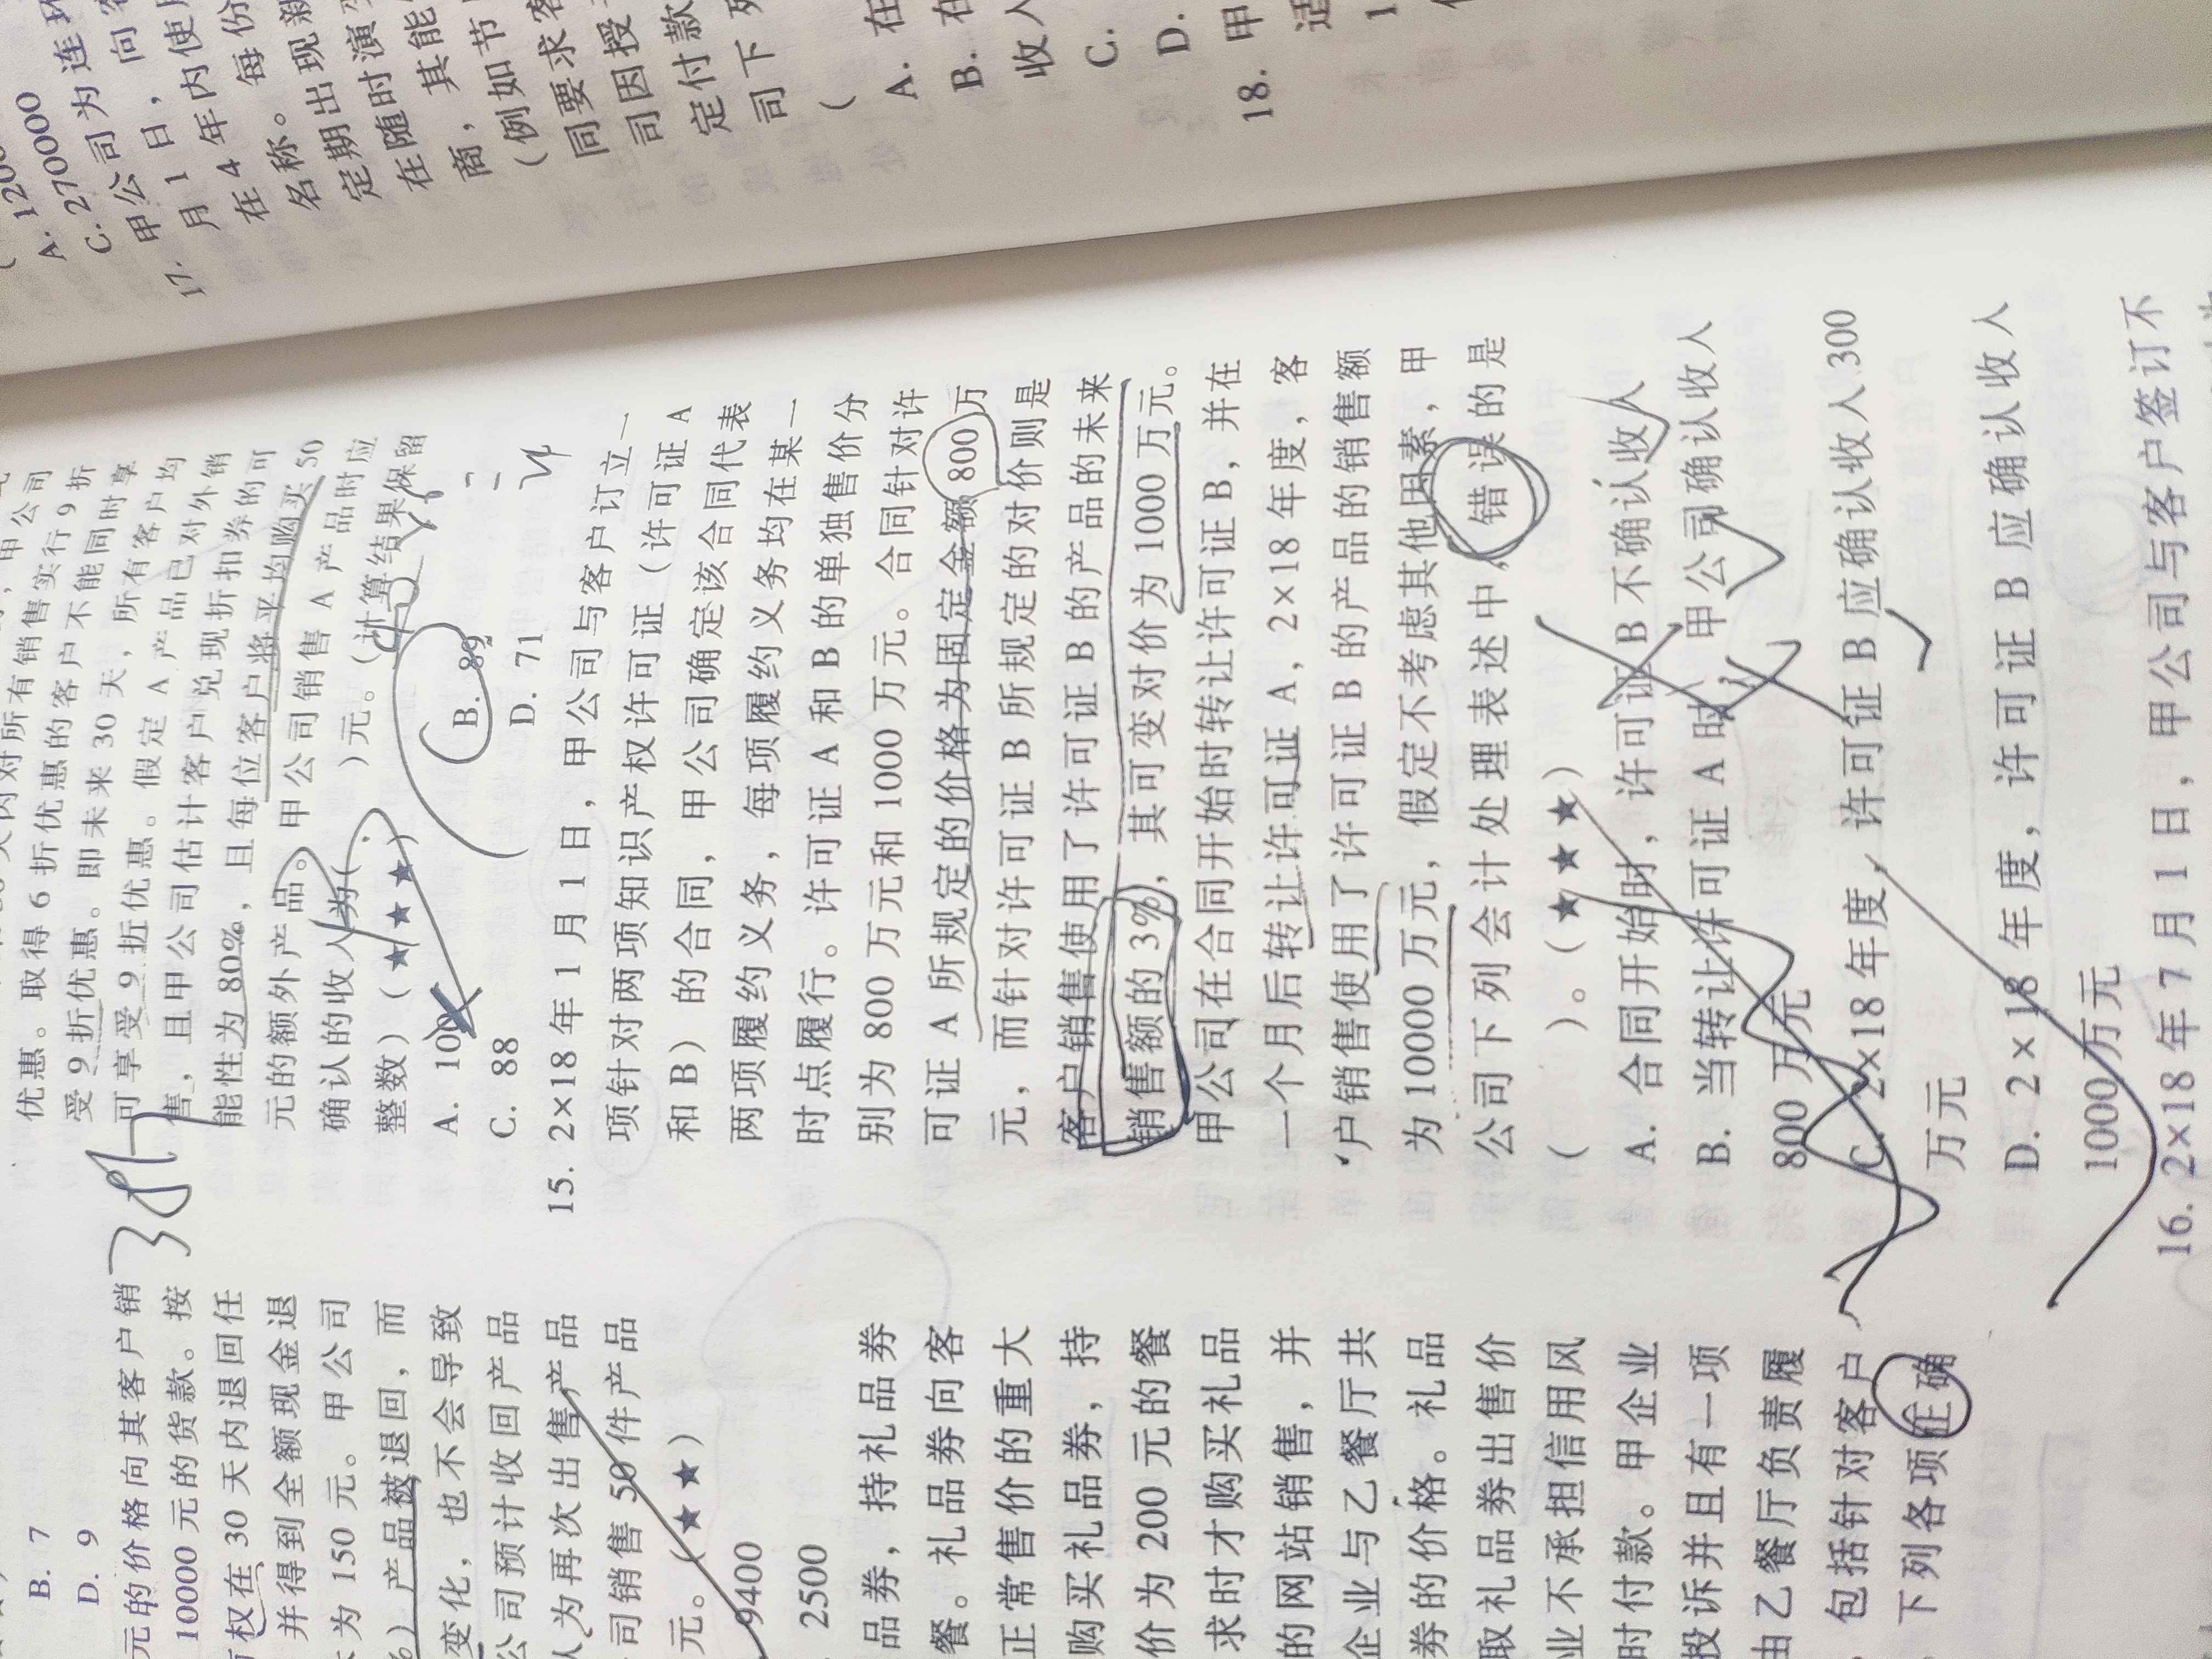 B. 7
D. 9
元的价格向其客户销
10000 元的货款。按
权在 30 天内退回任
并得到全额现金退
为 150 元。甲公司
产品被退回，而
变化，也不会导致
公司预计收回产品
人为再次出售产品
司销售 50 件产品
元。（★★）
9400
2500
品券，持礼品券
餐。礼品券向客
正常售价的重大
购买礼品券，持
价为 200 元的餐
求时才购买礼品
的网站销售，并
企业与乙餐厅共
券的价格。礼品
取礼品券出售价
业不承担信用风
时付款。甲企业
投诉并且有一项
由乙餐厅负责履
，包括针对客户
。下列各项正确
优惠。取得 6 折优惠的客户不能同时享
受 9 折优惠。即未来 30 天，所有客户均
可享受 9 折优惠。假定 A 产品已对外销
售，且甲公司估计客户兑现折扣券的可
能性为 80%，且每位客户将平均购买 50
元的额外产品。甲公司销售 A 产品时应
确认的收入为（ ）元。（计算结果保留
整数）（★★★）
A. 100 B. 89
C. 88 D. 71
15. 2×18 年 1 月 1 日，甲公司与客户订立一
项针对两项知识产权许可证（许可证 A
和 B）的合同，甲公司确定该合同代表
两项履约义务，每项履约义务均在某一
时点履行。许可证 A 和 B 的单独售价分
别为 800 万元和 1000 万元。合同针对许
可证 A 所规定的价格为固定金额 800 万
元，而针对许可证 B 所规定的对价则是
客户销售使用了许可证 B 的产品的未来
销售额的 3%，其可变对价为 1000 万元。
甲公司在合同开始时转让许可证 B，并在
一个月后转让许可证 A，2×18 年度，客
户销售使用了许可证 B 的产品的销售额
为 10000 万元，假定不考虑其他因素，甲
公司下列会计处理表述中，错误的是
（ ）。（★★★）
A. 合同开始时，许可证 B 不确认收入
B. 当转让许可证 A 时，甲公司确认收入
800 万元
C. 2×18 年度，许可证 B 应确认收入 300
万元
D. 2×18 年度，许可证 B 应确认收入
1000 万元
16. 2×18 年 7 月 1 日，甲公司与客户签订不
C. 270000
17. 甲公司为连环
月 1 日，向客
在 4 年内使用
名称。每份
定期出现新
在随时演变
商，其能
（例如节
同要求客
司因授
定付款
司下列
（
A. 在
B. 在
收入
C.
D.
18. 甲
适